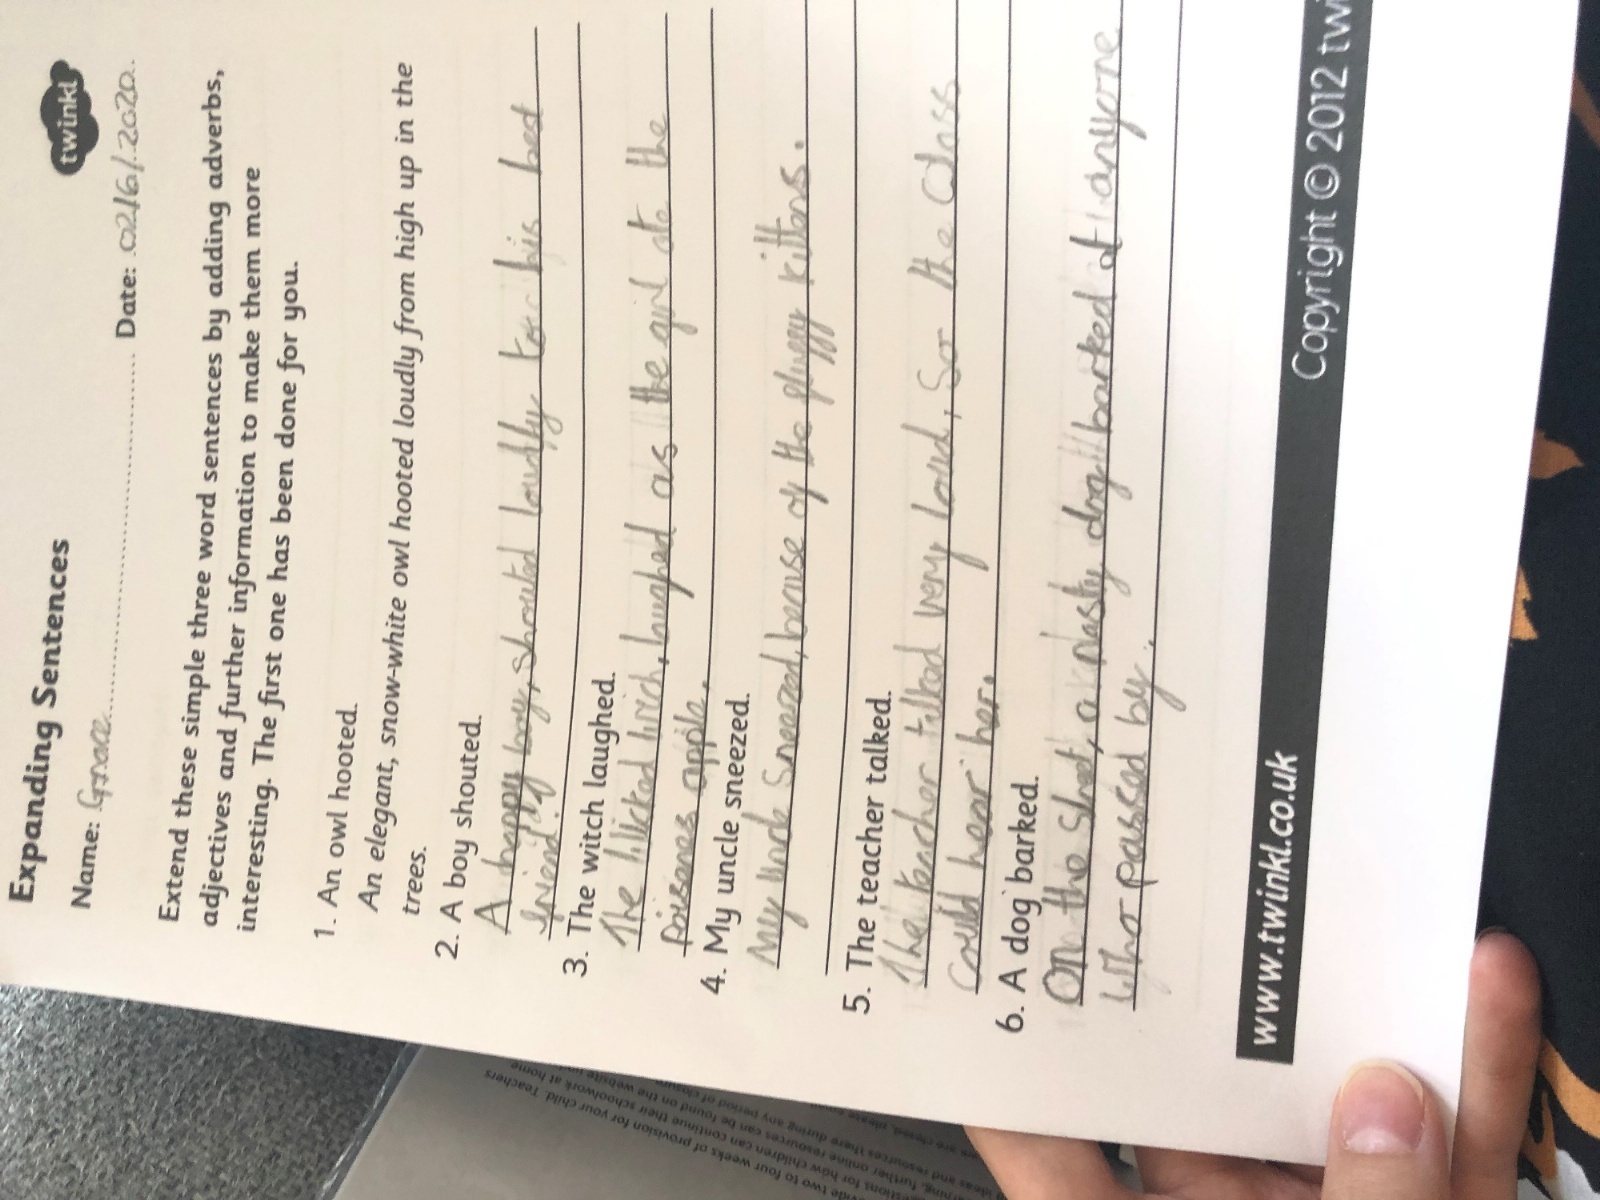 Expanding Sentences
twinkl
Name: Grace Date: 02/6/2020
Extend these simple three word sentences by adding adverbs,
adjectives and further information to make them more
interesting. The first one has been done for you.
1. An owl hooted.
An elegant, snow-white owl hooted loudly from high up in the
trees.
2. A boy shouted.
A happy boy, shouted loudly to his best
friend.
3. The witch laughed.
The Wicked witch, laughed as the girl ate the
apple.
4. My uncle sneezed.
My Uncle Sneezed, because of the fluffy kittens.
5. The teacher talked.
The teacher talked very loud, so the class
could hear her.
6. A dog barked.
On the street, a nasty dog barked at anyone
Who passed by.
www.twinkl.co.uk
Copyright © 2012 twi